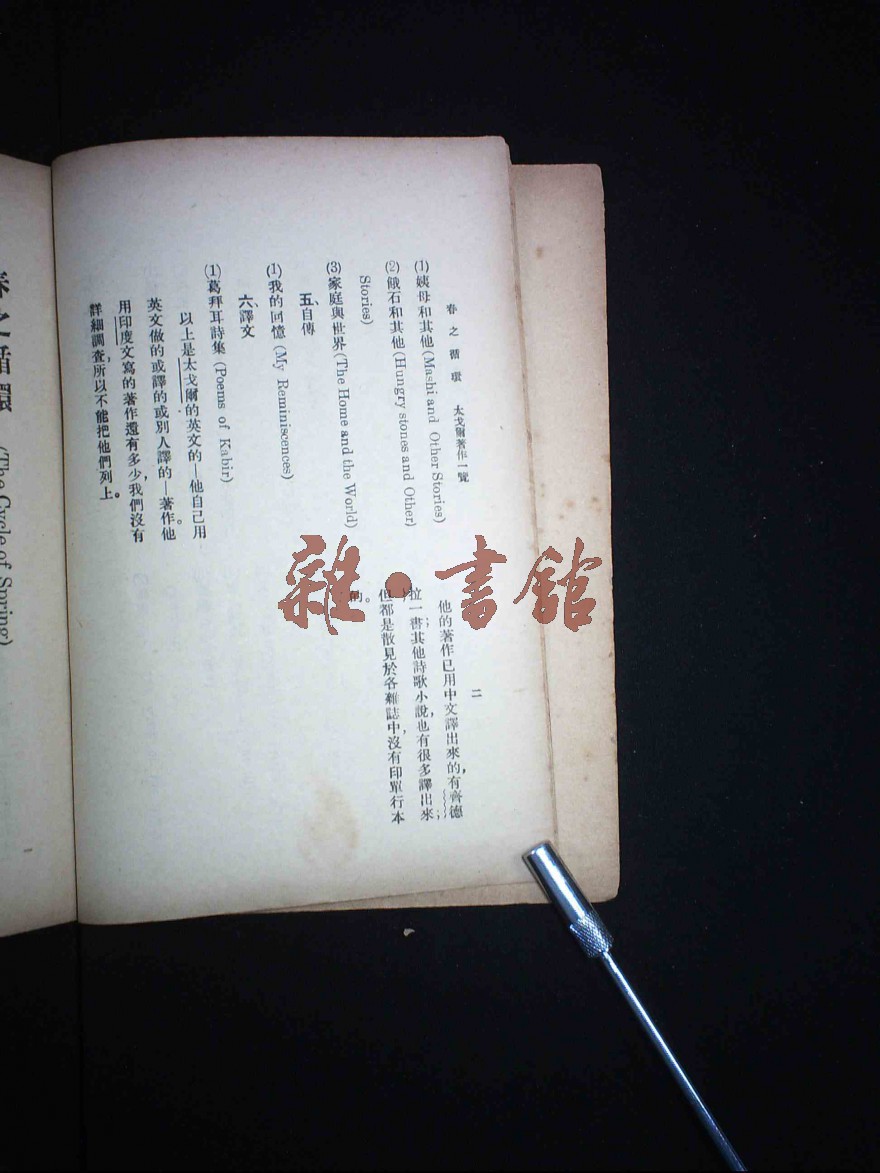 春之循環　太戈爾著作一覽　二
(1)姨母和其他(Mashi and Other Stories)
(2)餓石和其他(Hungry stones and Other
Stories)
(3)家庭與世界(The Home and the World)
五、自傳
(1)我的回憶(My Reminiscences)
六、譯文
(1)葛拜耳詩集(Poems of Kabir)
以上是太戈爾的英文的—他自己用
英文做的或譯的或別人譯的—著作。他
用印度文寫的著作還有多少，我們沒有
詳細調查，所以不能把他們列上。
他的著作已用中文譯出來的，有齊德
拉一書；其他詩歌小說，也有很多譯出來；
但都是散見於各雜誌中，沒有印單行本
的。
春之循環 (The Cycle of Spring)
雜•書館